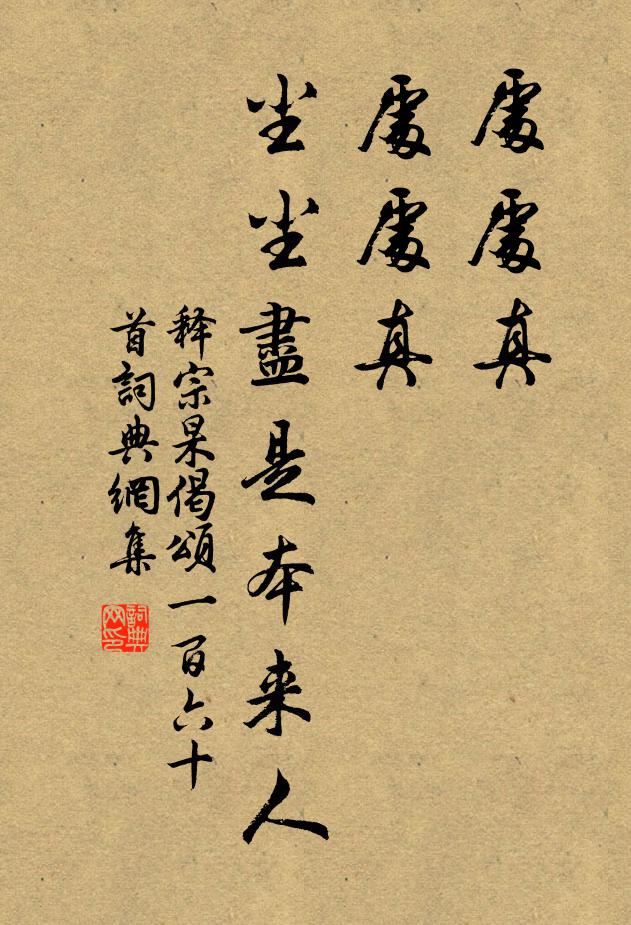 處處真
處處真
尘尘盡是本来人
释宗杲偈頌一百六十
首詞典網集
詞典
网印